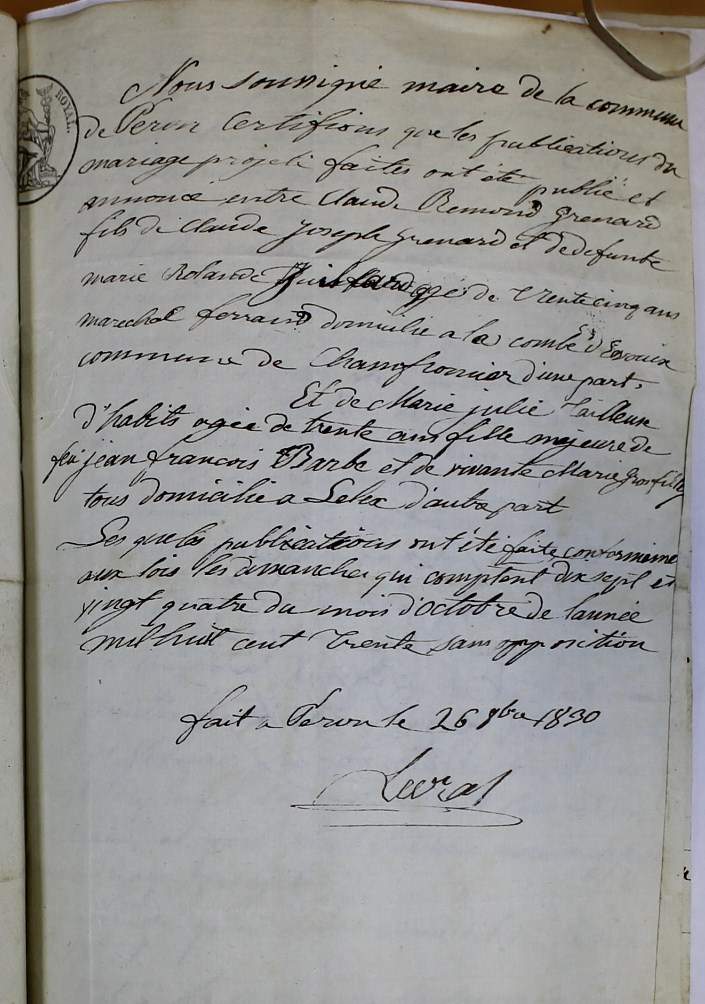 ROYAL.
Nous soussigné maire de la commune
de Péron Certifions que les publications du
mariage projeté faites ont été publié et
annoncé entre Claude Remond Grenard
fils de Claude Joseph Grenard et de defunte
marie Rolande agé de trente cinq ans
marechal ferrand domicilie a la combe d'Evouix
commune de Chamfromier d'une part,
Et de Marie julie Tailleuse
d'habits agée de trente ans fille majeure de
feu jean francois Barbe et de vivante Marie Grosfilley
tous domicilié a Lelex d'autre part
Les quelles publications ont été faite conformeme
aux lois les dimanches qui comptent dix sept et
vingt quatre du mois d'octobre de l'année
mil huit cent trente sans opposition
fait a Péron le 26 8bre 1830